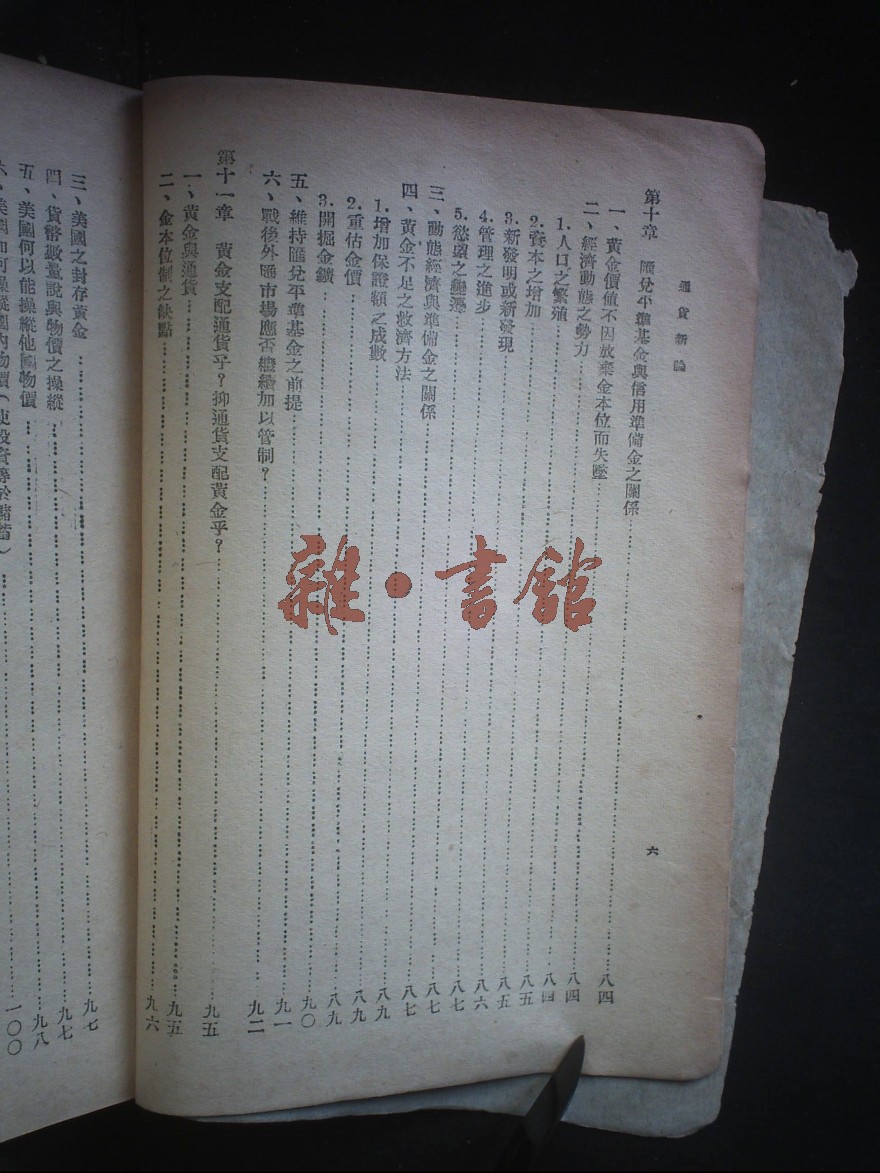 通貨新論
六
第十章 匯兌平準基金與信用準備金之關係……八四
一、黃金價値不因放棄金本位而失墜……八四
二、經濟動態之勢力……八四
1.人口之繁殖……八五
2.資本之增加……八五
3.新發明或新發現……八六
4.管理之進步……八七
5.慾望之變遷……八七
三、動態經濟與準備金之關係……八七
四、黃金不足之救濟方法……八九
1.增加保證額之成數……八九
2.重估金價……八九
3.開掘金鑛……九〇
五、維持匯兌平準基金之前提……九一
六、戰後外匯市場應否繼續加以管制?……九二
第十一章 黃金支配通貨乎?抑通貨支配黃金乎?……九五
一、黃金與通貨……九五
二、金本位制之缺點……九六
三、美國之封存黃金……九七
四、貨幣數量說與物價之操縱……九七
五、美國何以能操縱他國物價……九八
六、美國如何操縱國內物價(使投資等於儲蓄)……一〇〇
雜·書館